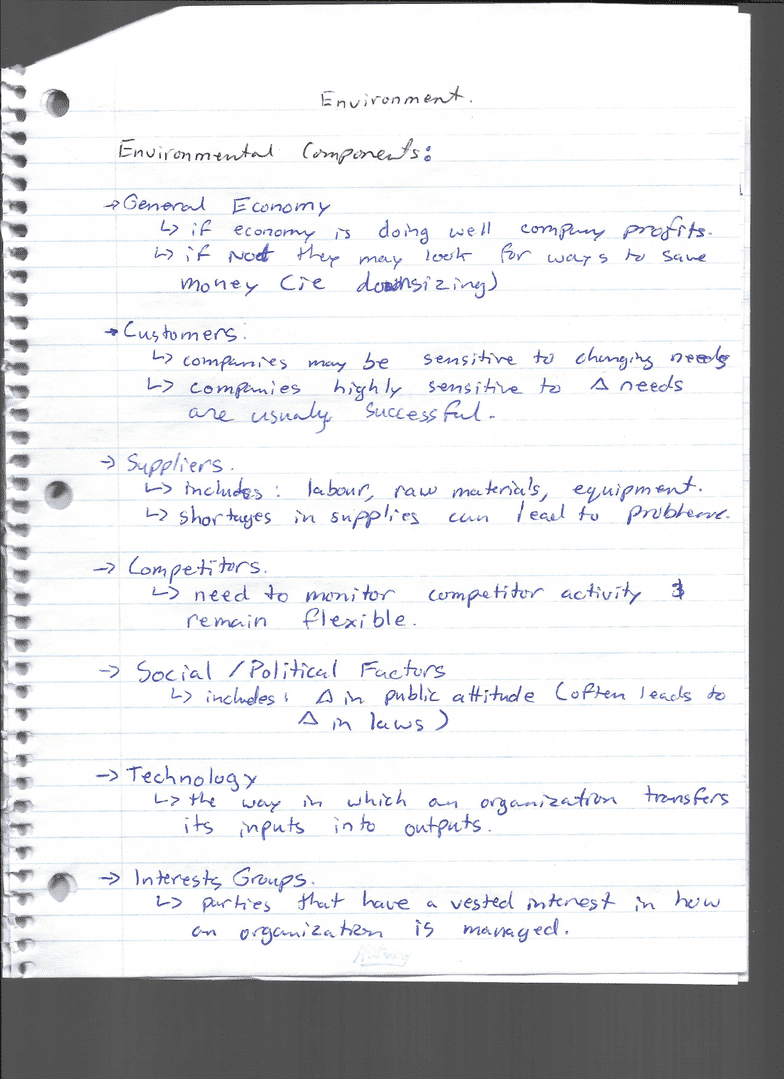 Environment.
Environmental Components:
→ General Economy
↳ if economy is doing well company profits.
↳ if not they may look for ways to save
money (ie downsizing)
→ Customers:
↳ companies may be sensitive to changing needs
↳ companies highly sensitive to Δ needs
are usualy successful.
→ Suppliers.
↳ includes: labour, raw materials, equipment.
↳ shortages in supplies can lead to
→ Competitors.
↳ need to monitor competitor activity &
remain flexible.
→ Social / Political Factors
↳ includes: Δ in public attitude (often leads to
Δ in laws)
→ Technology
↳ the way in which an organization transfers
its inputs into outputs.
→ Interests Groups.
↳ parties that have a vested interest in how
an organization is managed.